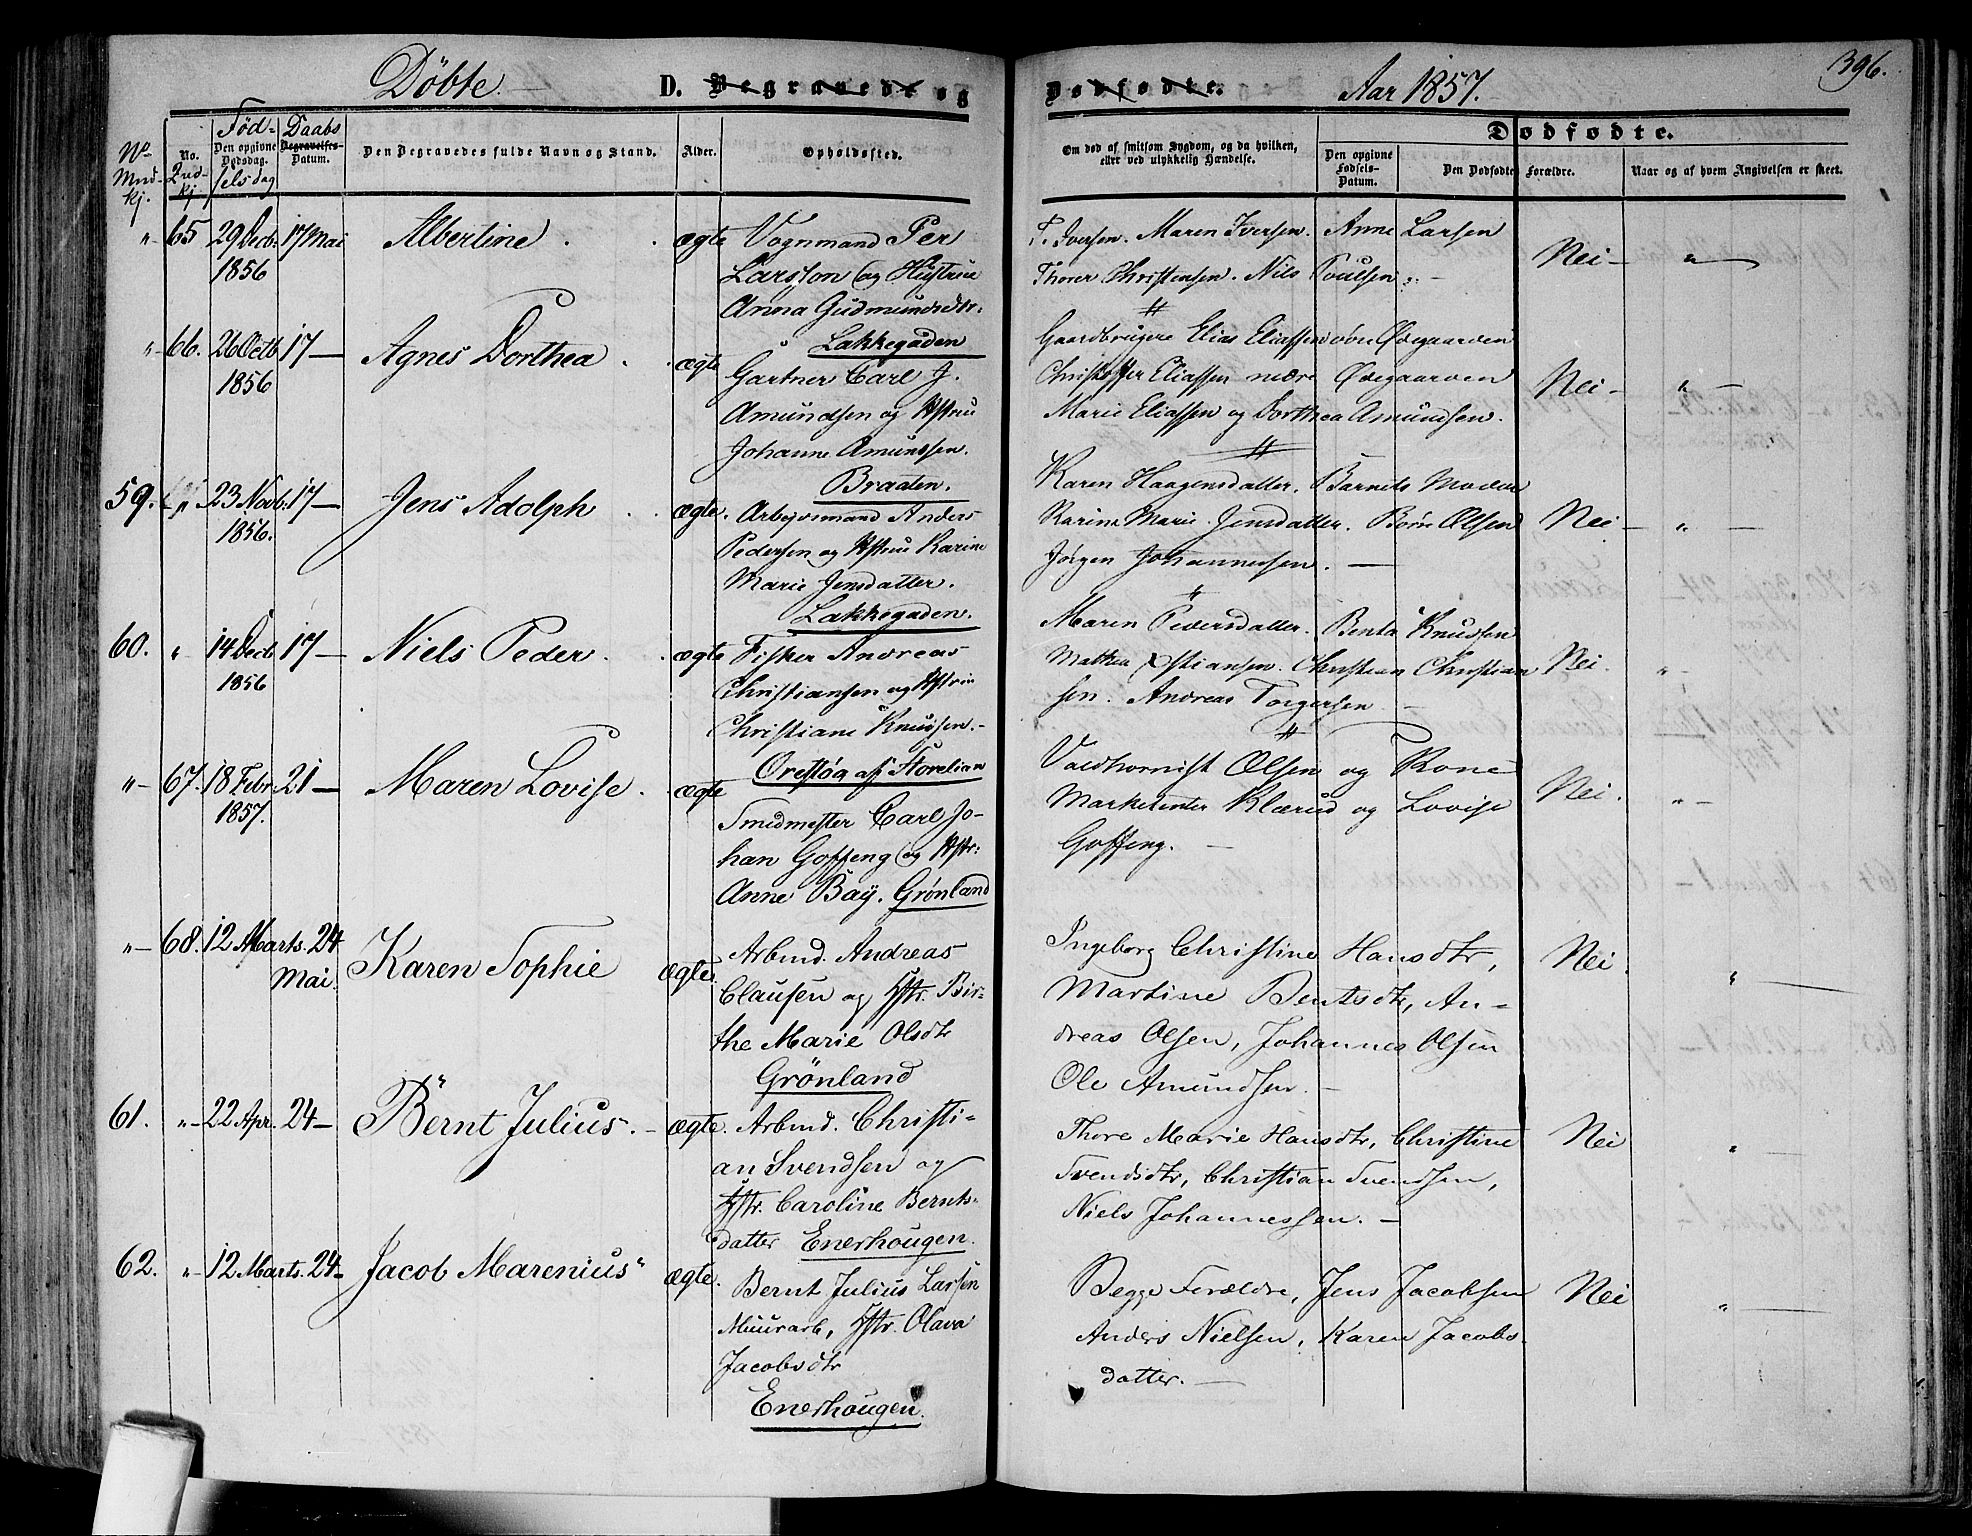 Döbte. D. Begravede og Dødfødte. Aar 1857. 396.
No. Mndkj.
No. Qndkj.
Fød- Den opgivne Dødsdag. selsdag
Daabs Begravelses-Datum.
Den Begravedes fulde Navn og Stand.
Alder.
Opholdssted.
Om død af smitsom Sygdom, og da hvilken, eller ved ulykkelig Hændelse.
Dødfødte.
Den opgivne Fødsels-Datum.
Den Dødfødtes Forældre.
Naar og af hvem Angivelsen er skeet.
" 65 29 Decb. 1856 17 Mai Albertine. ægte
Vognmand Per
Larsson og Hustrue
Anna Gudmundsdtr.
Lakkegaden
T. Iversen. Maren Iversen. Anne Larsen
Thorer Christensen. Nils Poulsen.
Nei — "
" 66. 26 Octb. 1856 17 — Agnes Dorthea. ægte
Gartner Carl J.
Amundsen og Hstru
Johanne Amundsen.
Braaten.
Gaardbrugere Elias Eliassen Ødegaarden
Christoffer Eliassen nedre Ødegaarden
Marie Eliassen og Dorthea Amundsen.
Nei — "
59. " 23 Novb. 1856. 17 — Jens Adolph. ægte.
Arbejdsmand Anders
Pedersen og Hstrue Karine
Marie Jensdatter.
Lakkegaden.
Karen Haagensdatter. Barnets Moder
Karine Marie Jensdatter. Börre Olsen
Jörgen Johannessen. —
Nei — " —
60. " 14 Decb. 1856 17 — Niels Peder. ægte
Fisker Andreas
Christiansen og Hstrue
Christiane Knudsen. -
Maren Pedersdatter. Benta Knudsen
Mathea Xstiansen. Christian Christian
sen. Andreas Torgersen
Nei. " -
" 67. 18 Febr. 1857. 21 — Maren Lovise. ægte
Smedmester Carl Jo-
han Goffeng og Hstr:
Anne Bay. Grönland
Valdhornist Olsen og Kone
Marketenter Klærud og Lovise
Goffeng. —
Nei. " —
" 68. 12 Marts. 24 Mai. Karen Sophie ægte.
Arbmd. Andreas
Clausen og Hstr. Bir-
the Marie Olsdtr
Grönland
Ingeborg Christine Hansdtr,
Martine Berntsdtr, An-
dreas Olsen, Johannes Olsen
Ole Amundsen. —
Nei. "
61. " 22 Apr. 24 — Bernt Julius. — ægte.
Arbmd. Christi-
an Svendsen og
Hstr. Caroline Bernts-
datter Enerhougen.
Thore Marie Hansdtr, Christine
Svendsdtr, Christian Svendsen,
Niels Johannessen. —
Nei "
62. " 12 Marts. 24 — Jacob Marenius ægte.
Bernt Julius Larsen
Muurarb, Hstr. Olava
Jacobsdtr
Enerhougen.
Begge Forældre, Jens Jacobsen
Anders Nielsen, Karen Jacobs-
datter. —
Nei "